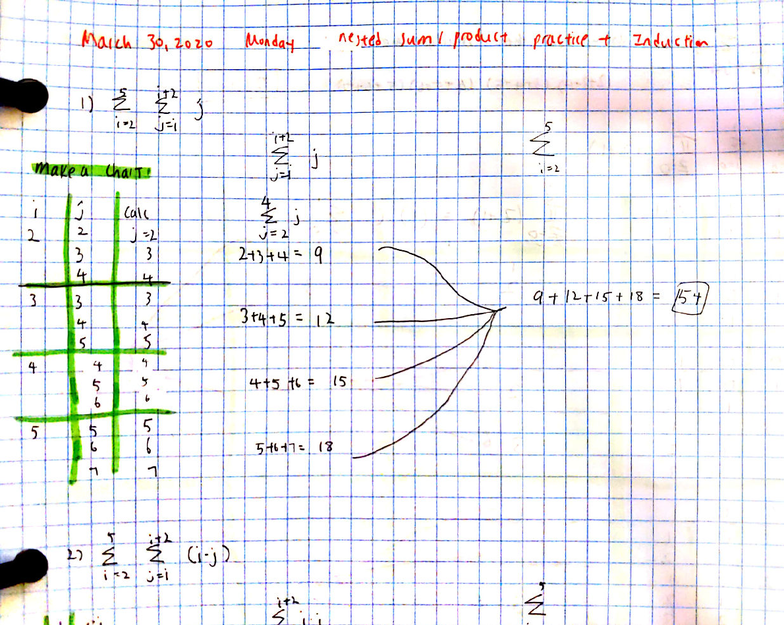 March 30, 2020 Monday nested sum/product practice + Induction
1) 5 Σ i=2 i+2 Σ j=i j
i+2 Σ j=i j
5 Σ i=2
Make a Chart:
i j calc
4 Σ j=2 j
2 2 j=2
3 3
4 4
2+3+4 = 9
3 3 3
4 4
5 5
3+4+5 = 12
9+12+15+18 = 54
4 4 4
5 5
6 6
4+5+6 = 15
5 5 5
6 6
7 7
5+6+7 = 18
2) 5 Σ i=2 i+2 Σ j=i (i-j)
i+2 Σ
5 Σ